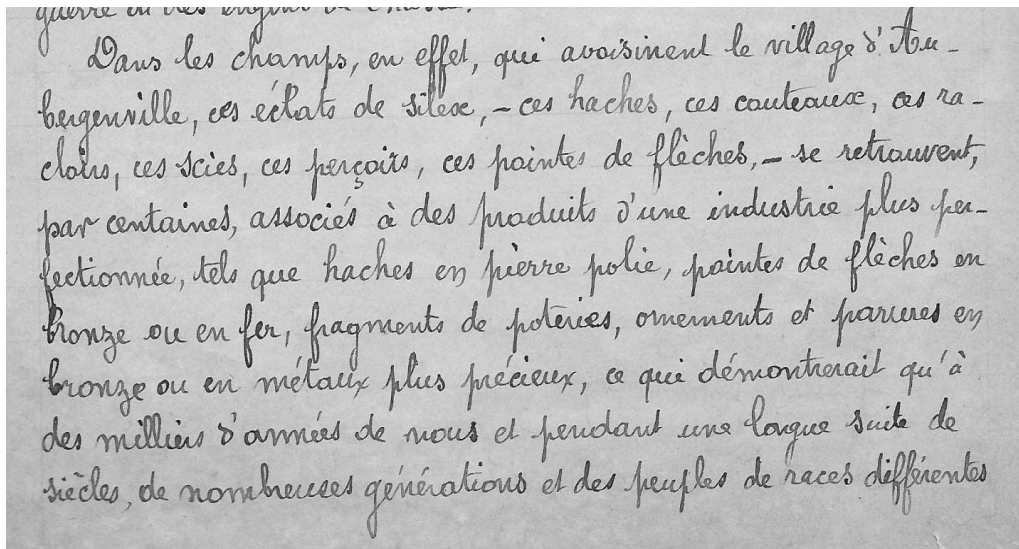 guerre ou des engins de chasse.
Dans les champs, en effet, qui avoisinent le village d'Au-
bergenville, ces éclats de silex, – ces haches, ces couteaux, ces ra-
cloirs, ces scies, ces perçoirs, ces pointes de flèches, – se retrouvent,
par centaines, associés à des produits d'une industrie plus per-
fectionnée, tels que haches en pierre polie, pointes de flèches en
bronze ou en fer, fragments de poteries, ornements et parures en
bronze ou en métaux plus précieux, ce qui démontrerait qu'à
des milliers d'années de nous et pendant une longue suite de
siècles, de nombreuses générations et des peuples de races différentes